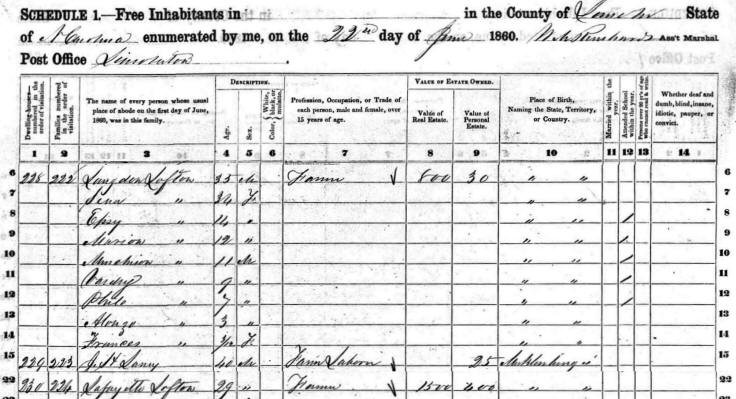 SCHEDULE 1.—Free Inhabitants in in the County of Lincoln State
of N Carolina enumerated by me, on the 22nd day of June 1860. Ass't Marshal
Post Office Lincolnton
Dwelling-houses— numbered in the order of visitation.
Families numbered in the order of visitation.
The name of every person whose usual place of abode on the first day of June, 1860, was in this family.
DESCRIPTION.
Age.
Sex.
Color, White, black, or mulatto.
Profession, Occupation, or Trade of each person, male and female, over 15 years of age.
VALUE OF ESTATE OWNED.
Value of Real Estate.
Value of Personal Estate.
Place of Birth, Naming the State, Territory, or Country.
Married within the year.
Attended School within the year.
Persons over 20 y'rs of age who cannot read & write.
Whether deaf and dumb, blind, insane, idiotic, pauper, or convict.
1 2 3 4 5 6 7 8 9 10 11 12 13 14
6 228 222 Langdon Lofton 35 M Farmer 800 30 " " 6
7 " 34 F " " 7
8 Epsy " 14 " " " / 8
9 Marion " 12 " " " / 9
10 " 11 M " " / 10
11 " 9 " " " / 11
12 " 7 " " " / 12
13 Alonzo " 3 " " " 13
14 Frances " F " " 14
15 229 223 Laney 40 M Farm Labor 25 Mecklenburg " 15
22 230 224 Lafayette Lofton 29 " Farmer 1500 400 " " 22